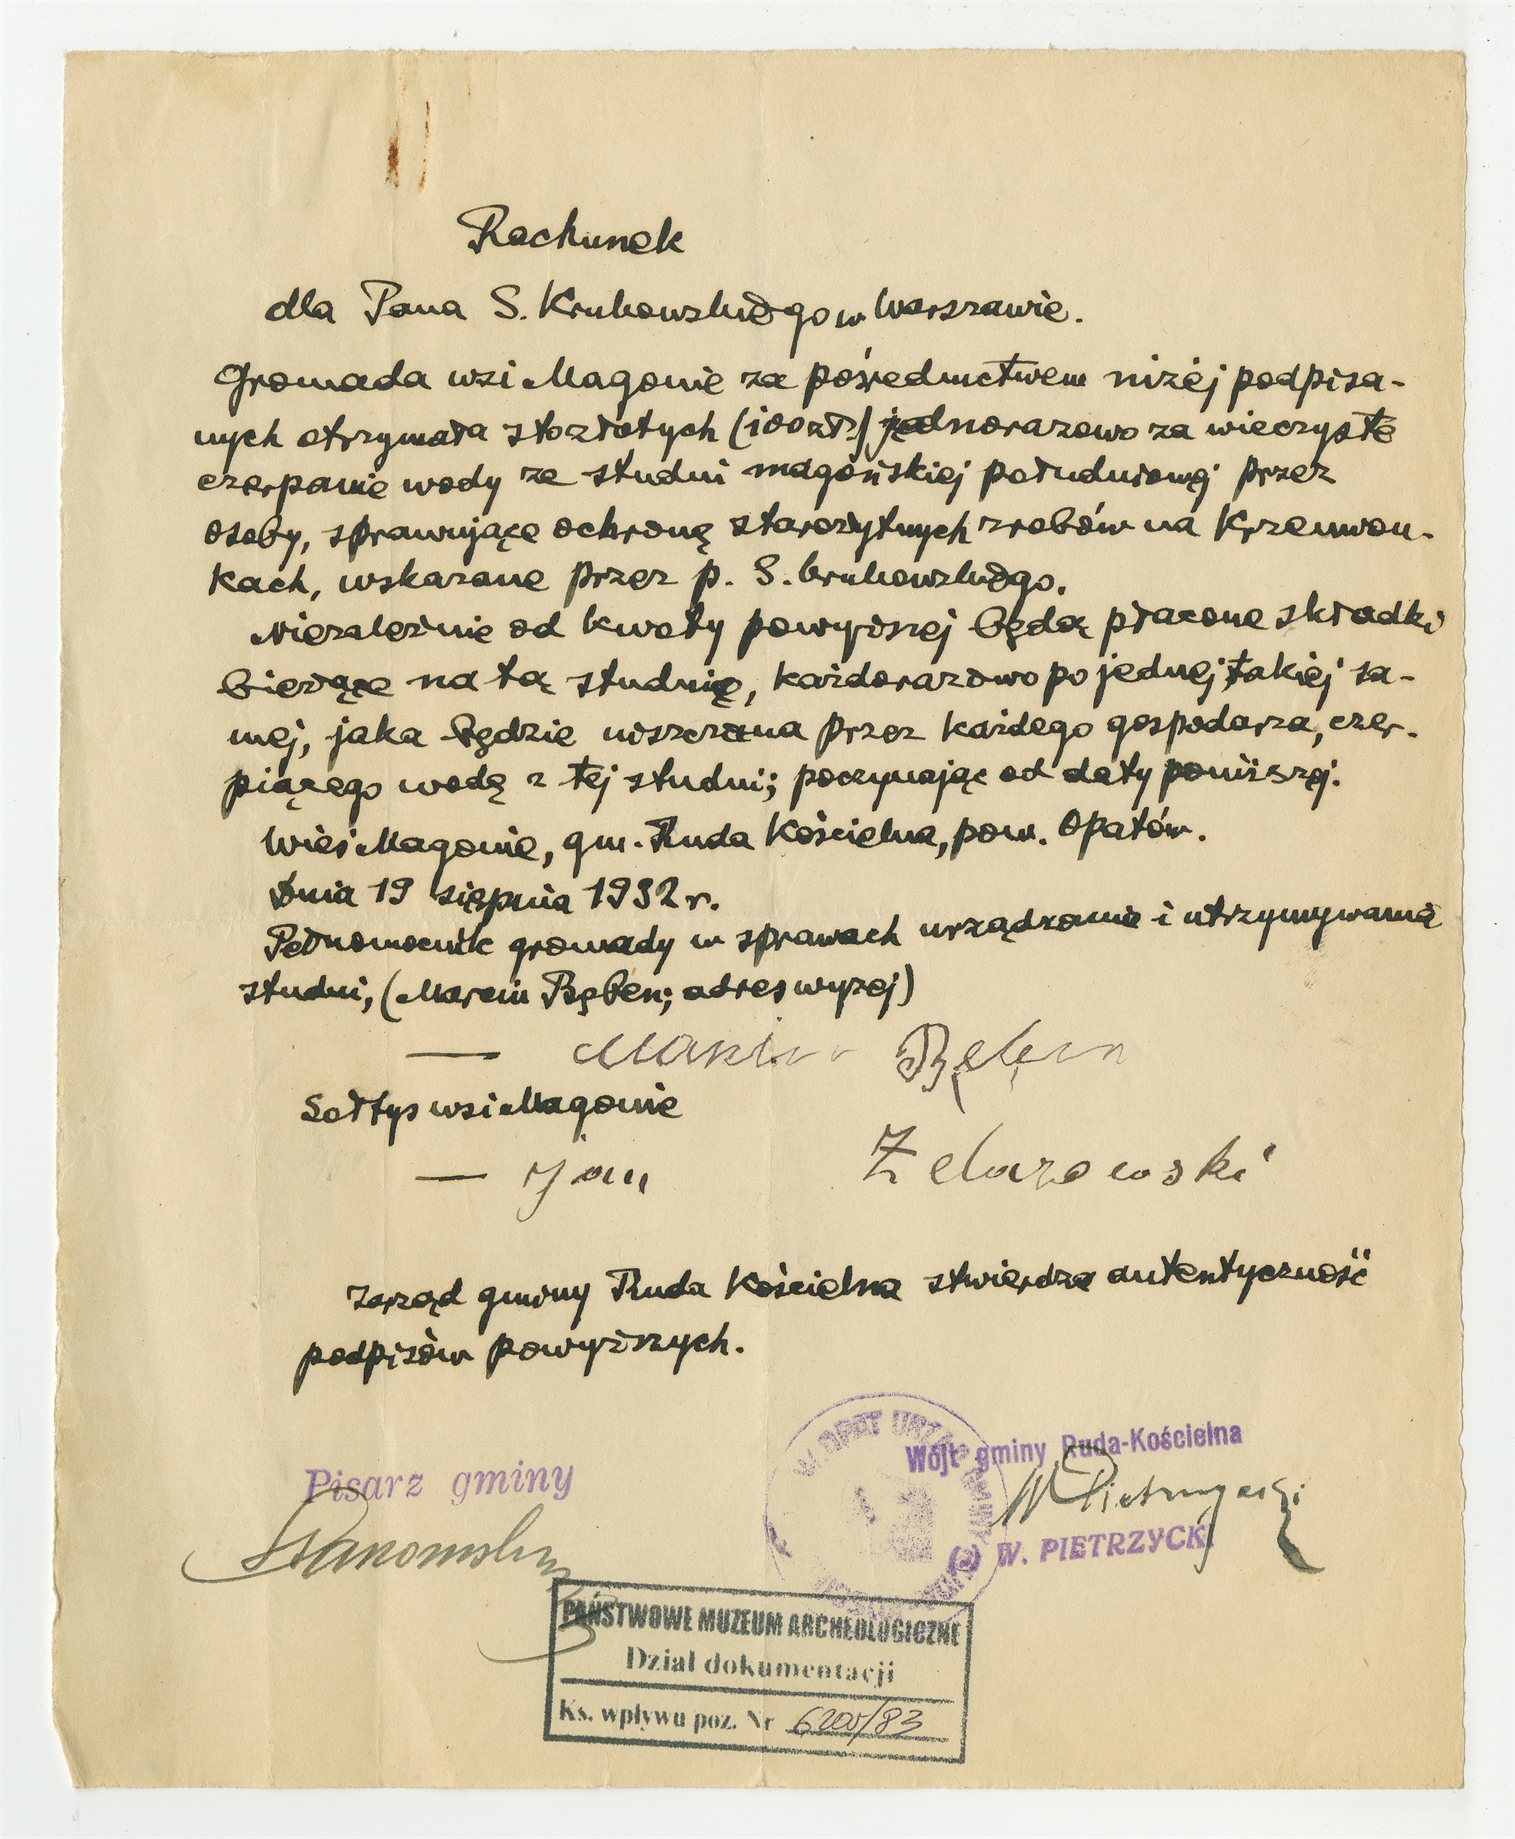 Rachunek
dla Pana S. Krukowskiego w Warszawie.
Gromada wsi Magonie za pośrednictwem niżej podpisa-
nych otrzymała sto złotych (100 zł.) jednorazowo za wieczyste
czerpanie wody ze studni magońskiej południowej przez
osoby, sprawujące ochronę starożytnych zrobów na Krzemion-
kach, wskazane przez p. S. Krukowskiego.
Niezależnie od kwoty powyższej będą płacone składki
bieżące na tą studnię, każdorazowo po jednej takiej sa-
mej, jaka będzie uiszczana przez każdego gospodarza, czer-
piącego wodę z tej studni; poczynając od daty poniższej.
Wieś Magonie, gm. Ruda Kościelna, pow. Opatów.
Dnia 19 sierpnia 1932 r.
Pełnomocnik gromady w sprawach urządzania i utrzymywania
studni, (Marcin Bęben; adres wyżej)
— Marcin Bęben
Sołtys wsi Magonie
— Jan Żelazowski
Zarząd gminy Ruda Kościelna stwierdza autentyczność
podpisów powyższych.
Pisarz gminy
Wójt gminy Ruda-Kościelna
W Pietrzycki
(-) W. PIETRZYCKI
PAŃSTWOWE MUZEUM ARCHEOLOGICZNE
Dział dokumentacji
Ks. wpływu poz. Nr 6200/83